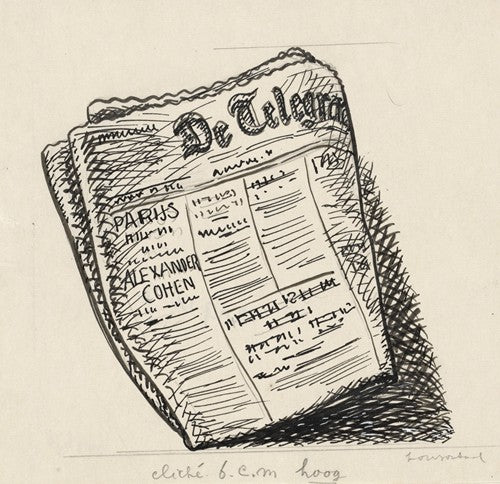 De Telegra
PARIJS
ALEXANDER
COHEN
cliché 6 c.m hoog